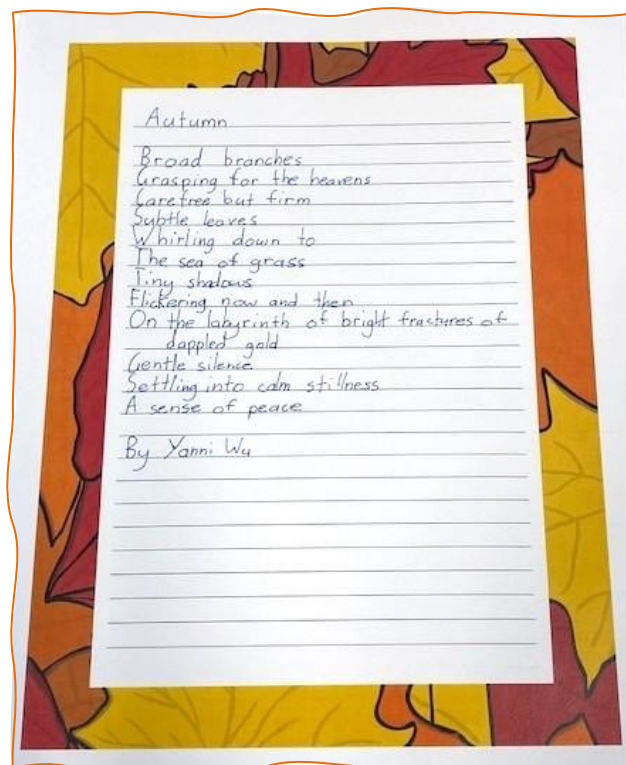 Autumn
Broad branches
Grasping for the heavens
Carefree but firm
Subtle leaves
Whirling down to
The sea of grass
Tiny shadows
Flickering now and then
On the labyrinth of bright fractures of
dappled gold
Gentle silence
Settling into calm stillness
A sense of peace
By Yanni Wu